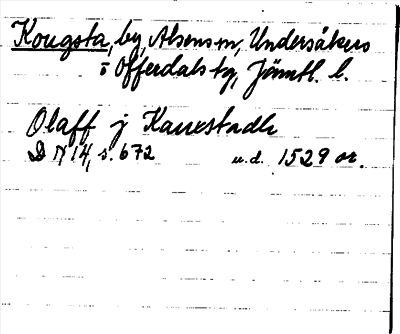 Kougsta, by, Alsens sn, Undersåkers
o Offerdals tg, Jämtl. l.
Olaff j Kauxstadh
D N 14, s. 672 u.d. 1529 or.